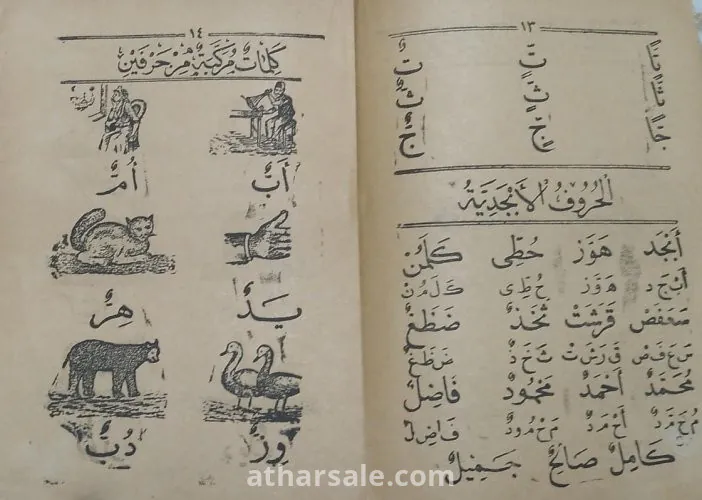 ١٣
تًا تٍ تٌ
ثًا ثٍ ثٌ
جًا جٍ جٌ
الْحُرُوفُ الْأَبْجَدِيَّةُ
أَبْجَد هَوَّز حُطِّى كَلَمُنْ
أَبْ جَ د هَ وَّ ز حُ طِّ ى كَ لَ مُ نْ
سَعَفَصْ قَرَشَتْ ثَخَذٌ ضَظَغٌ
سَ عَ فَ صْ قَ رَ شَ تْ ثَ خَ ذٌ ضَ ظَ غٌ
مُحَمَّدٌ أَحْمَدٌ مَحْمُودٌ فَاضِلٌ
مُ حَ مَّ دٌ أَ حْ مَ دٌ مَ حْ مُ و دٌ فَ ا ضِ لٌ
كَامِلٌ صَالِحٌ جَمِيلٌ
١٤
كَلِمَاتٌ مُرَكَّبَةٌ مِنْ حَرْفَيْنِ
أَبٌ أُمٌّ
يَدٌ هِرٌّ
وِزٌّ دُبٌّ
atharsale.com